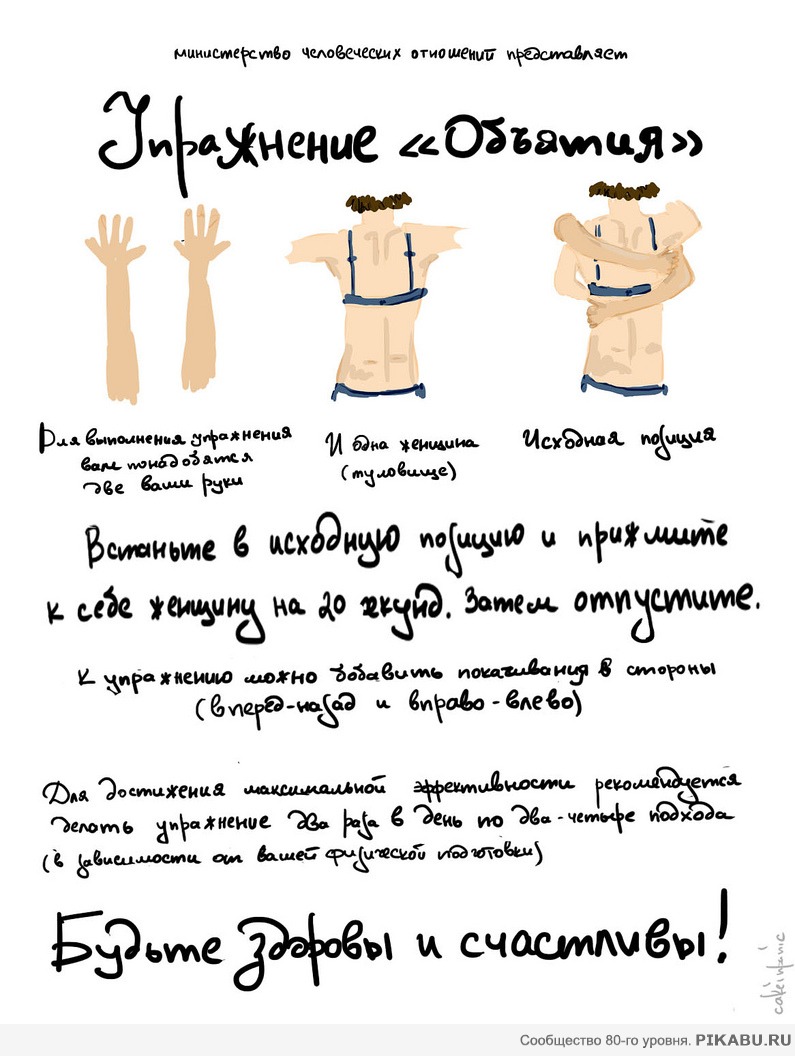 министерство человеческих отношений представляет
Упражнение «Объятия»
Для выполнения упражнения
вам понадобятся
две ваши руки
И одна женщина
(туловище)
Исходная позиция
Встаньте в исходную позицию и прижмите
к себе женщину на 20 секунд. Затем отпустите.
К упражнению можно добавить покачивания в стороны
(вперёд-назад и вправо-влево)
Для достижения максимальной эффективности рекомендуется
делать упражнение два раза в день по два-четыре подхода
(в зависимости от вашей физической подготовки)
Будьте здоровы и счастливы!
Сообщество 80-го уровня. PIKABU.RU